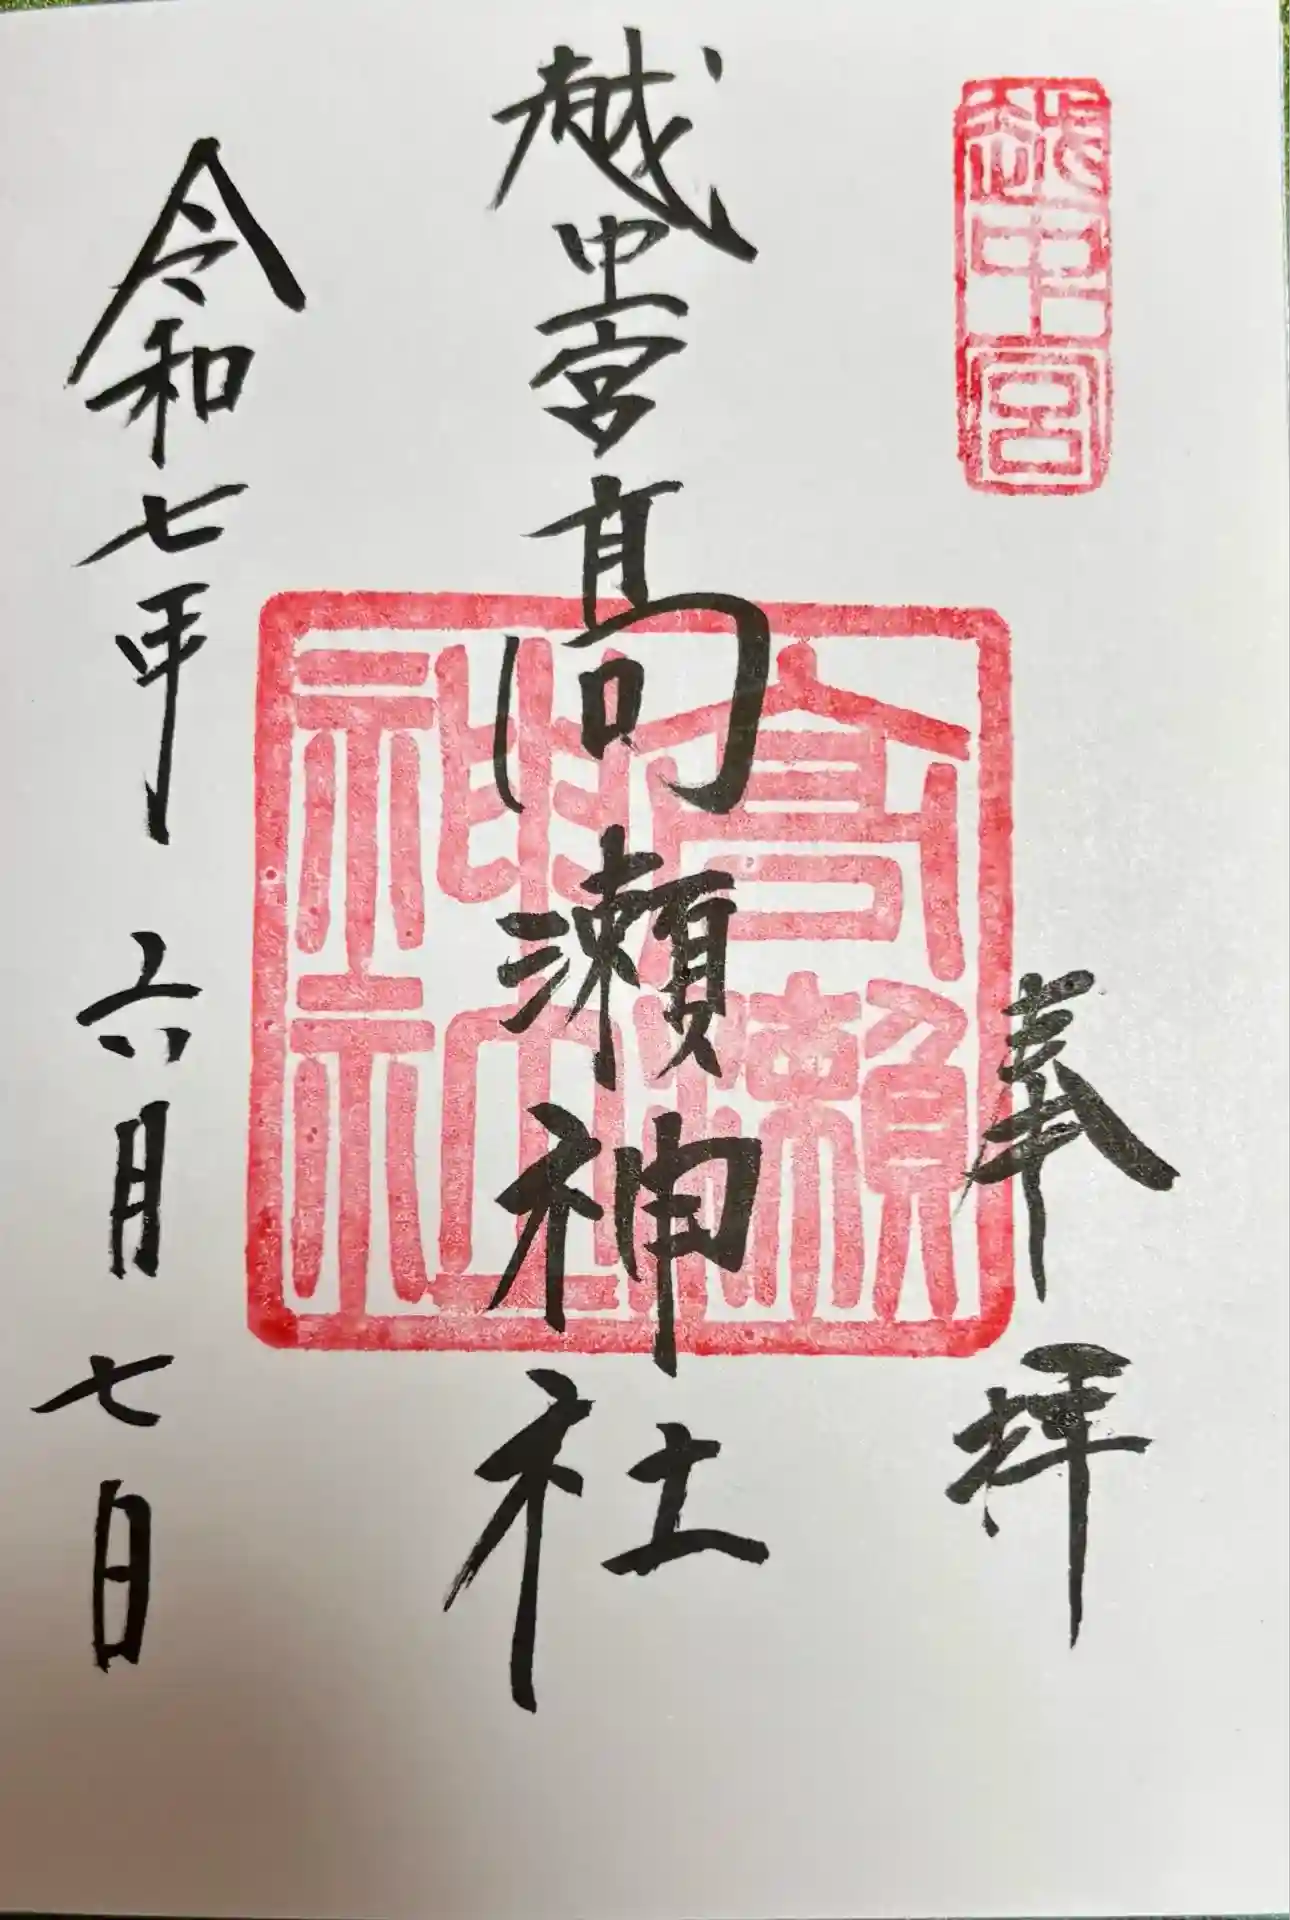 越中一宮
奉拝
越中一宮髙瀬神社
高瀬
神社
令和七年六月七日